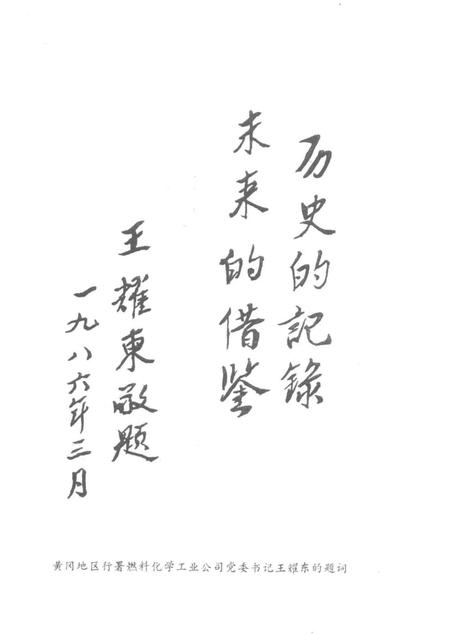 历史的記錄
未来的借鉴
王耀東敬题
一九八六年三月
黄冈地区行署燃料化学工业公司党委书记王耀东的题词